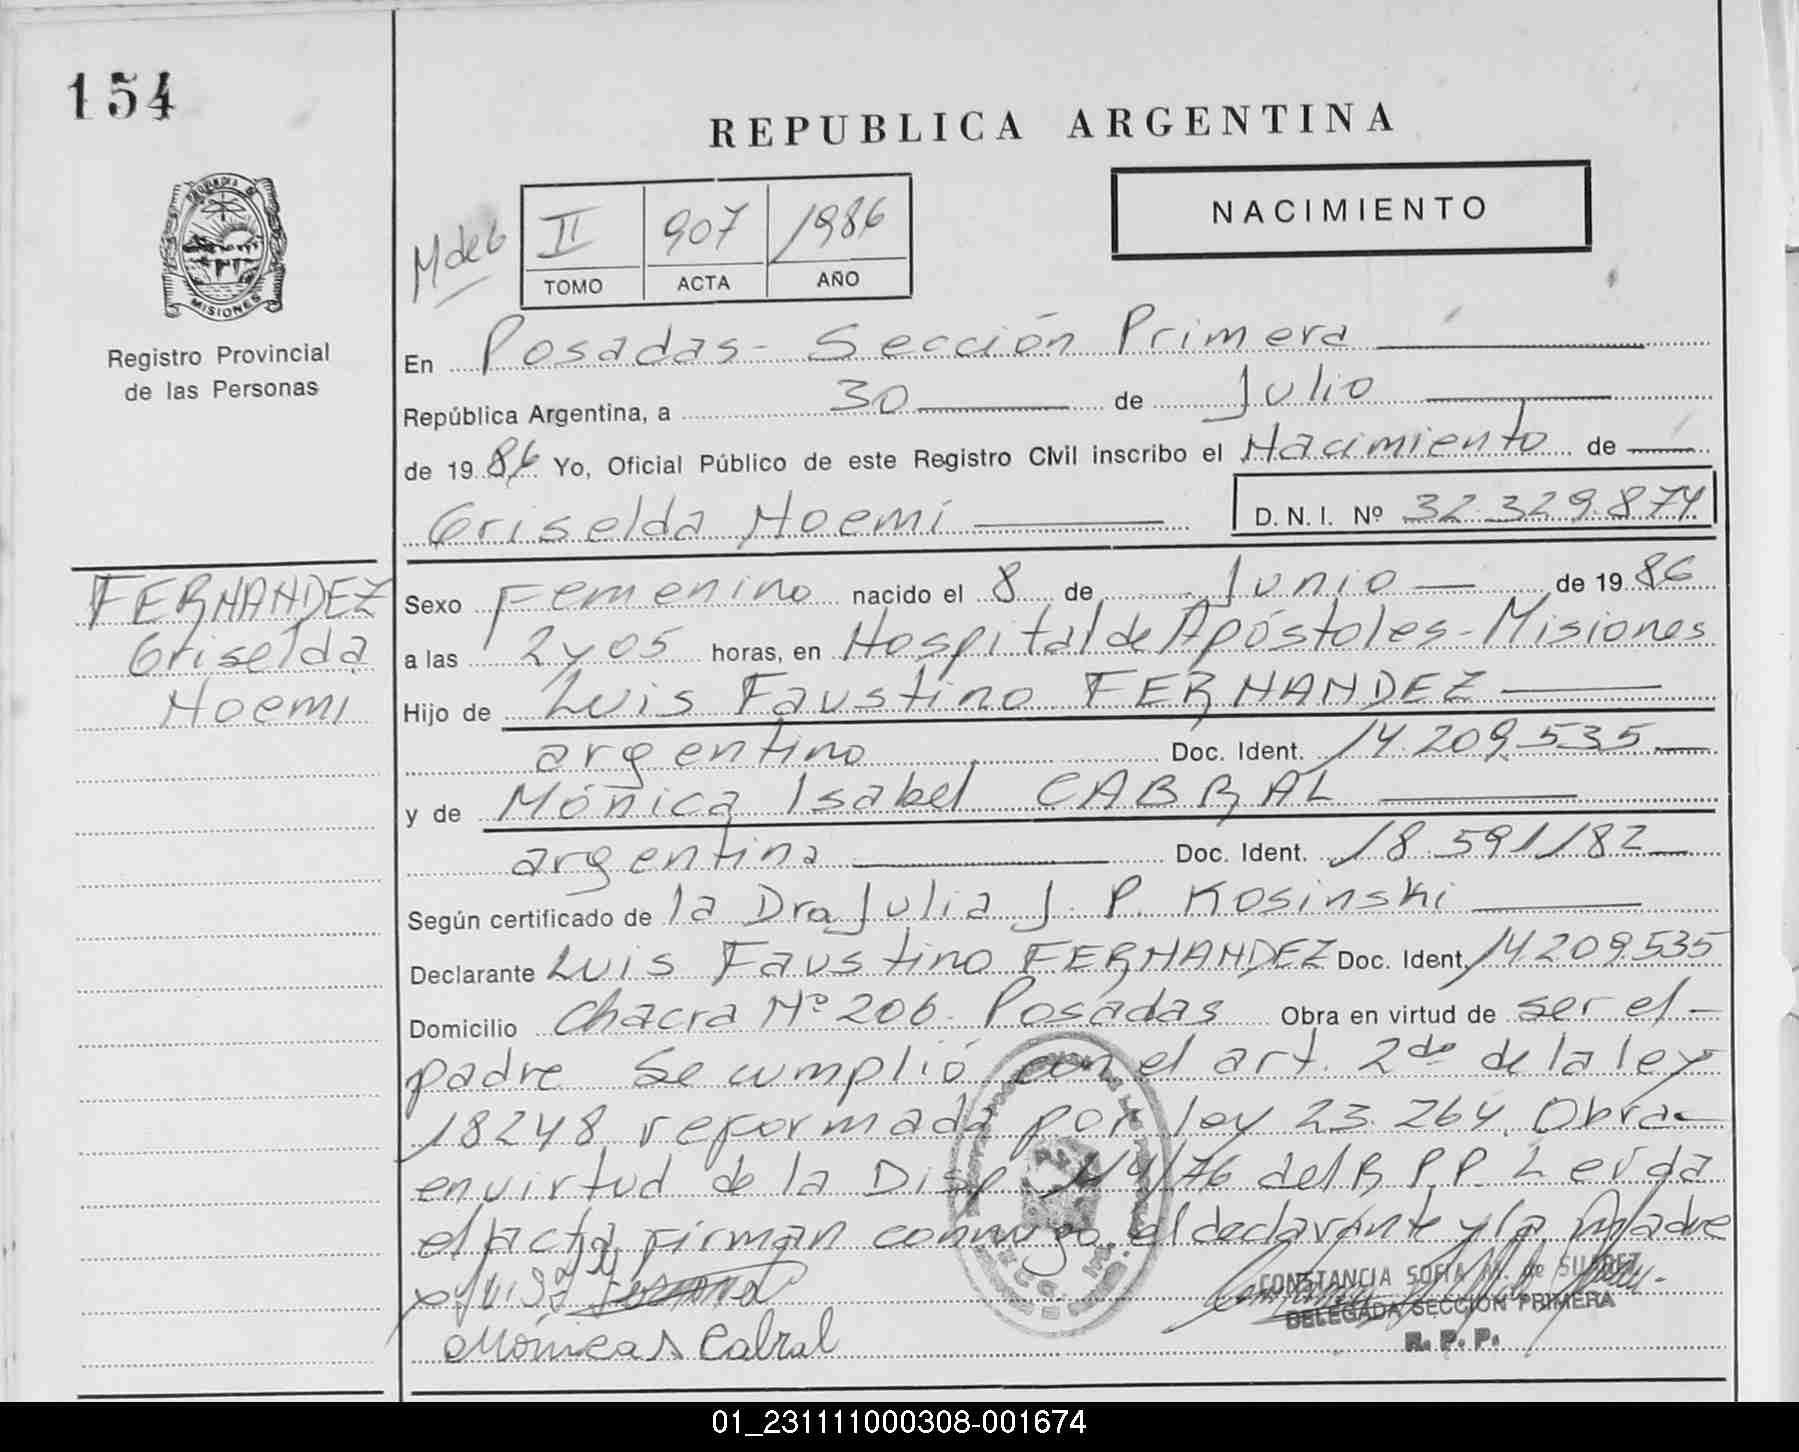 154
REPUBLICA ARGENTINA
NACIMIENTO
M de 6
II 907 1986
TOMO ACTA AÑO
PROVINCIA DE
MISIONES
Registro Provincial
de las Personas
En Posadas - Sección Primera
República Argentina, a 30 de Julio
de 1986 Yo, Oficial Público de este Registro Civil inscribo el Nacimiento de
Griselda Noemí D.N.I. Nº 32.329.874
FERNANDEZ
Griselda
Noemi
Sexo Femenino nacido el 8 de Junio de 1986
a las 2 y 05 horas, en Hospital de Apóstoles - Misiones
Hijo de Luis Faustino FERNANDEZ
argentino Doc. Ident. 14.209.535
y de Mónica Isabel CABRAL
argentina Doc. Ident. 18.591182
Según certificado de la Dra Julia J. P. Kosinski
Declarante Luis Faustino FERNANDEZ Doc. Ident. 14209535
Domicilio Chacra Nº 206. Posadas Obra en virtud de ser el
padre Se cumplió con el art. 2do de la ley
18248 reformada por ley 23.264. Obra
en virtud de la Disp /76 del R.P.P. Leída
el acta firman conmigo el declarante y la Madre
CONSTANCIA SOFIA M. de SUAREZ
DELEGADA SECCION PRIMERA
R. P. P.
Mónica Cabral
01_231111000308-001674